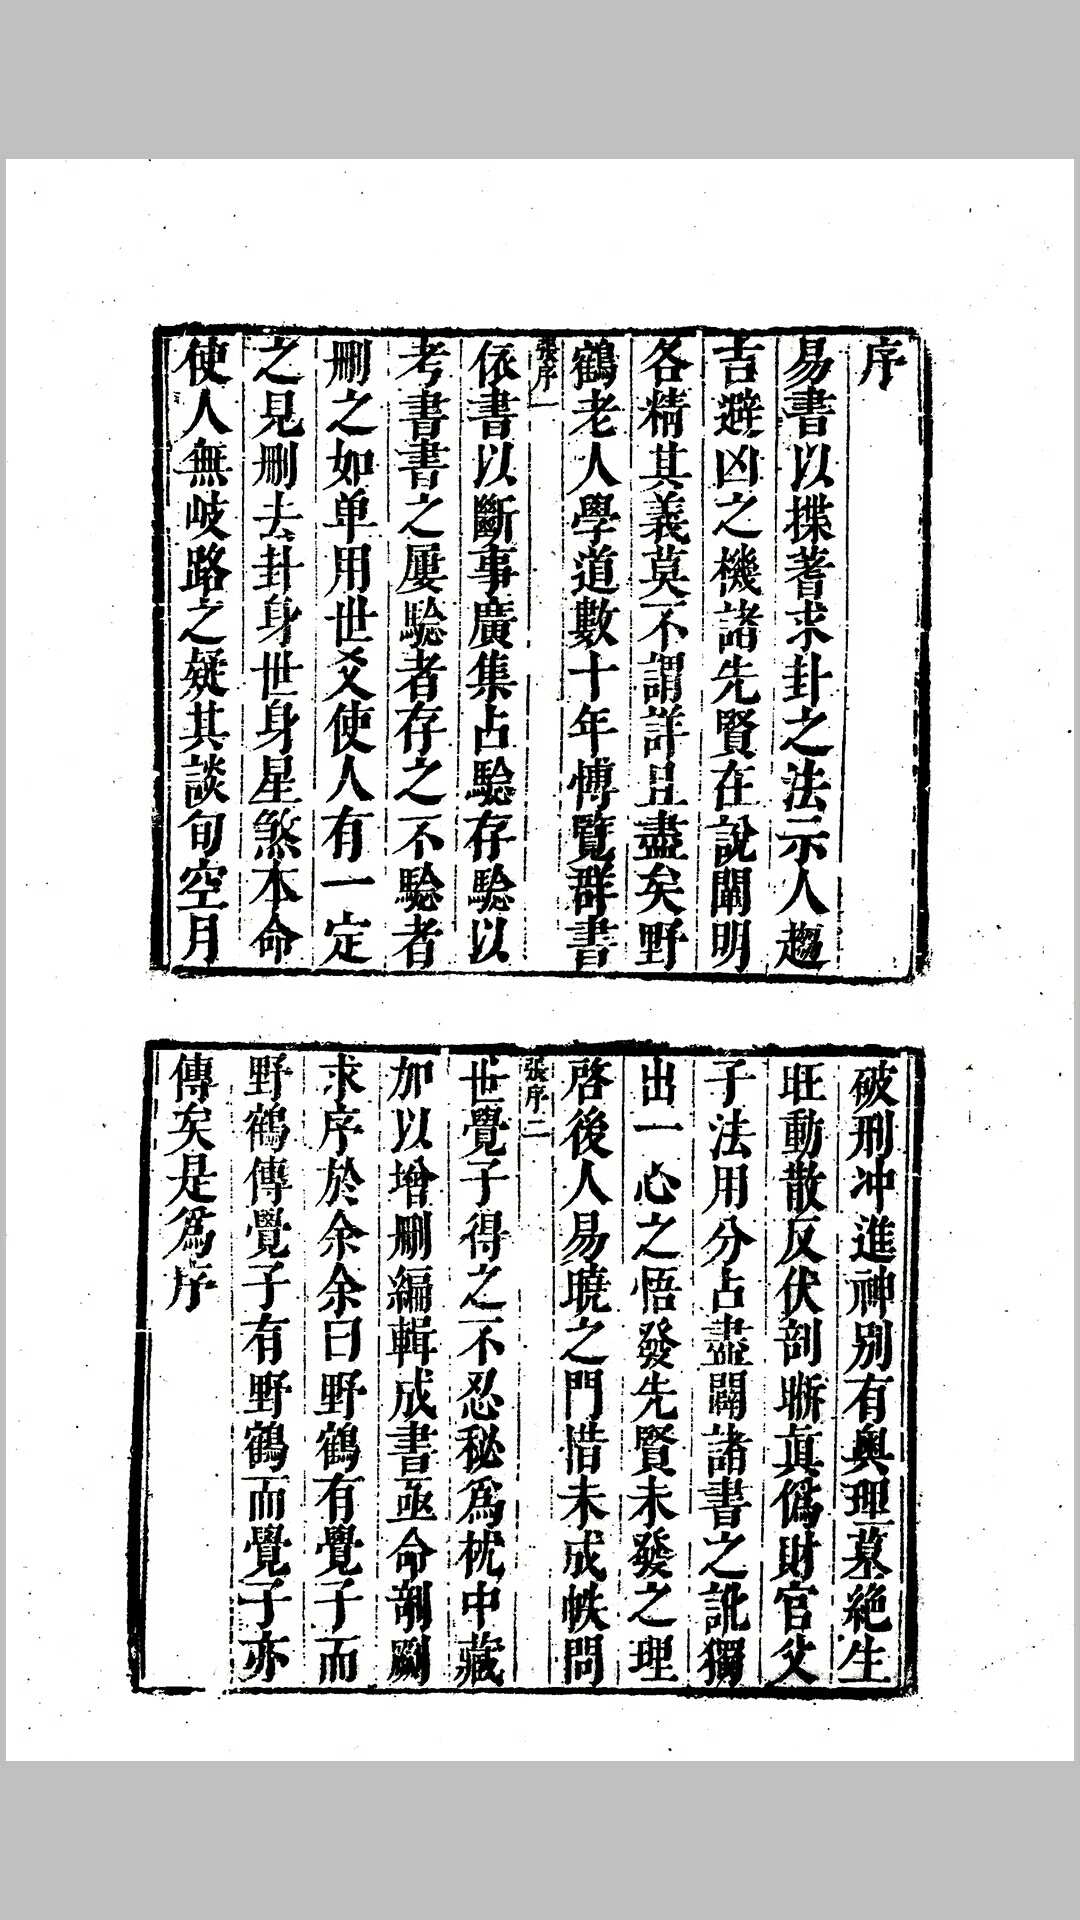 序
易書以揲蓍求卦之法示人趨
吉避凶之機諸先賢在說闡明
各精其義莫不謂詳且盡矣野
鶴老人學道數十年博覽群書
張序一
依書以斷事廣集占驗存驗以
考書書之屢驗者存之不驗者
刪之如单用世爻使人有一定
之見刪去卦身世身星煞本命
使人無岐路之疑其談旬空月
破刑冲進神别有奥理墓絶生
旺動散反伏剖晰真僞財官父
子法用分占盡闢諸書之訛獨
出一心之悟發先賢未發之理
啓後人易曉之門惜未成帙問
張序二
世覺子得之不忍秘爲枕中藏
加以增刪編輯成書亟命剞劂
求序於余余曰野鶴有覺子而
野鶴傳覺子有野鶴而覺子亦
傳矣是爲序